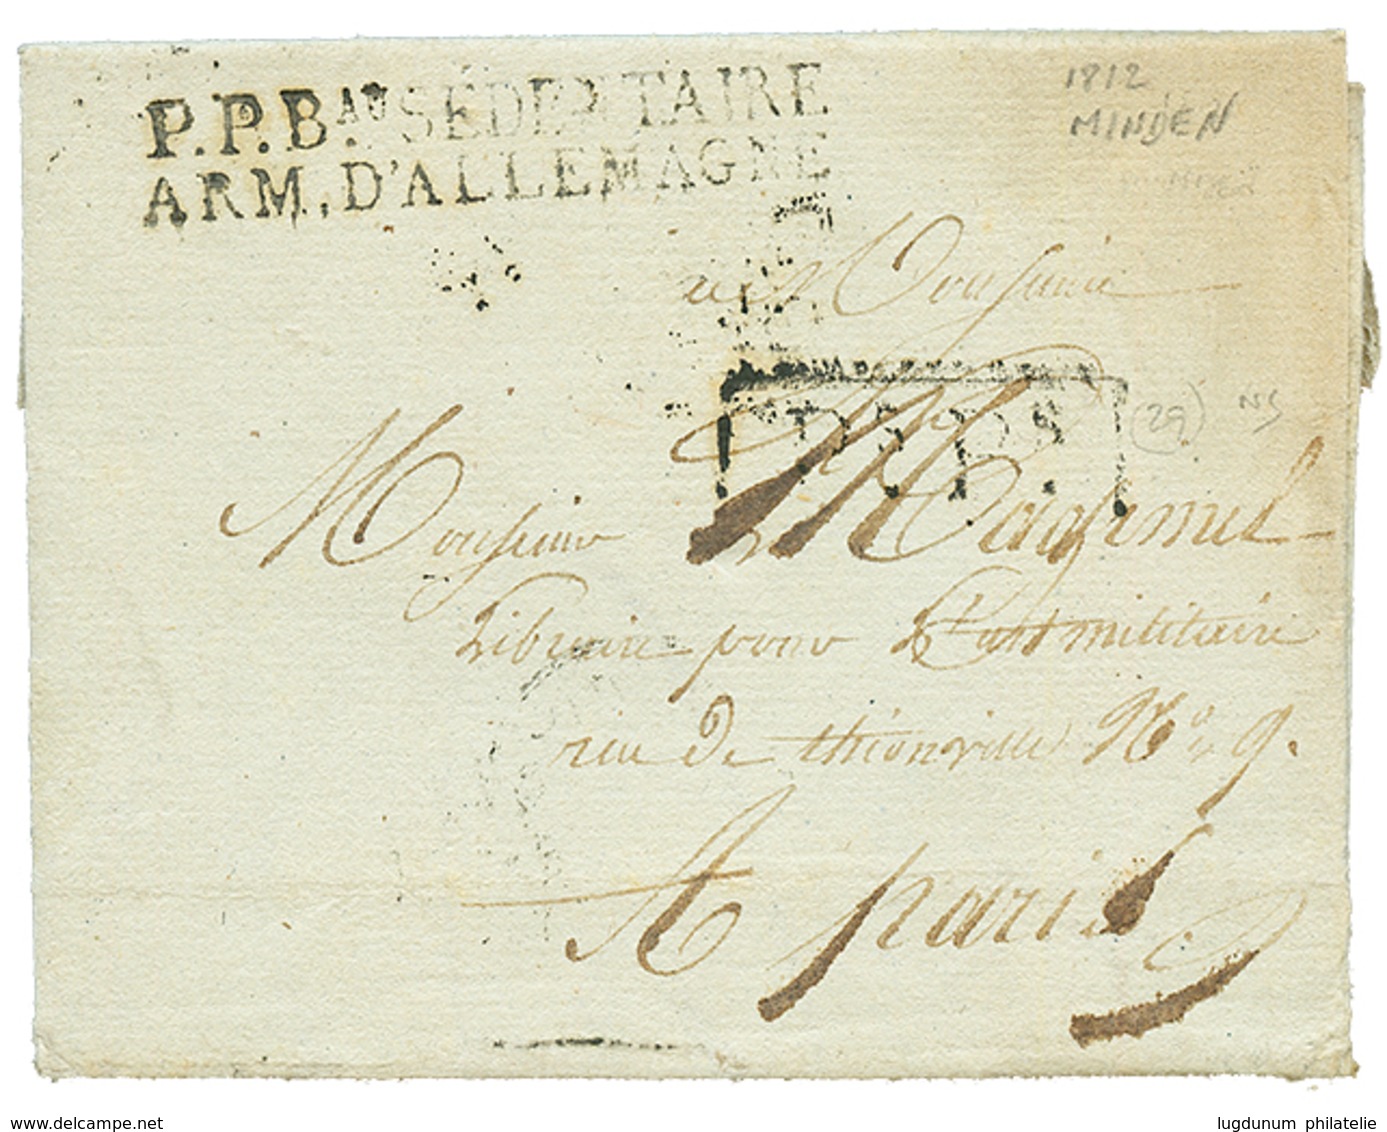 P.P.Bau. SÉDENTAIRE
ARM. D'ALLEMAGNE
1812
MINDEN
a Monsieur
P.P.P.P.
(29) NS
Monsieur Magimel
Libraire pour L'art militaire
rue de thionville No 9.
A paris
www.delcampe.net
lugdunum philatelie